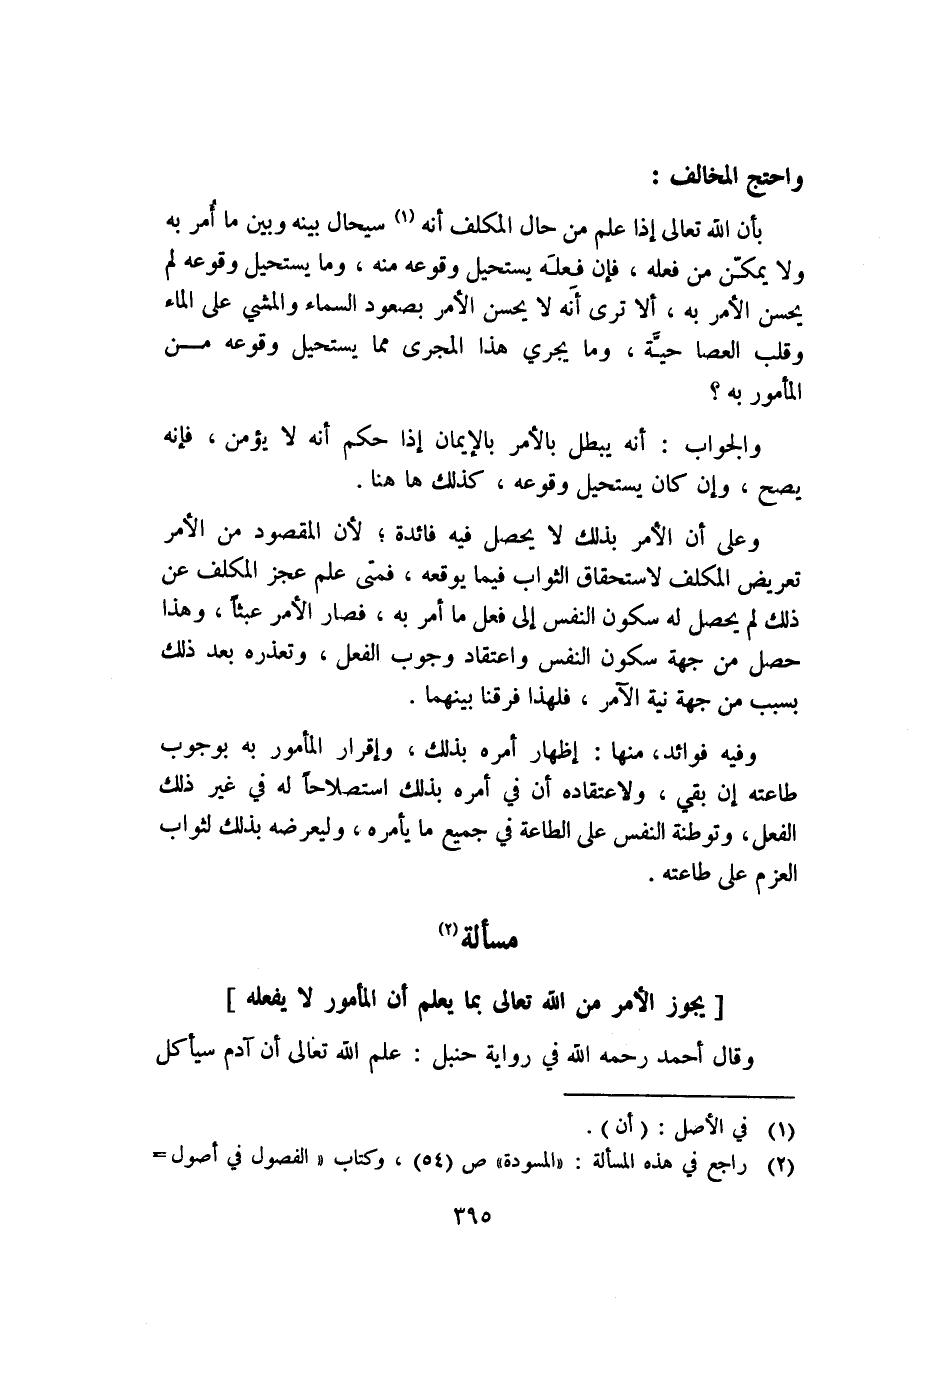 واحتج المخالف :
بأن الله تعالى إذا علم من حال المكلف أنه (١) سيحال بينه وبين ما أُمر به
ولا يمكّن من فعله ، فإن فعلَه يستحيل وقوعه منه ، وما يستحيل وقوعه لم
يحسن الأمر به ، ألا ترى أنه لا يحسن الأمر بصعود السماء والمشي على الماء
وقلب العصا حيَّة ، وما يجري هذا المجرى مما يستحيل وقوعه مــن
المأمور به ؟
والجواب : أنه يبطل بالأمر بالإيمان إذا حكم أنه لا يؤمن ، فإنه
يصح ، وإن كان يستحيل وقوعه ، كذلك ها هنا .
وعلى أن الأمر بذلك لا يحصل فيه فائدة ؛ لأن المقصود من الأمر
تعريض المكلف لاستحقاق الثواب فيما يوقعه ، فمتى علم عجز المكلف عن
ذلك لم يحصل له سكون النفس إلى فعل ما أمر به ، فصار الأمر عبثاً ، وهذا
حصل من جهة سكون النفس واعتقاد وجوب الفعل ، وتعذره بعد ذلك
بسبب من جهة نية الآمر ، فلهذا فرقنا بينهما .
وفيه فوائد، منها : إظهار أمره بذلك ، وإقرار المأمور به بوجوب
طاعته إن بقي ، ولاعتقاده أن في أمره بذلك استصلاحاً له في غير ذلك
الفعل، وتوطنة النفس على الطاعة في جميع ما يأمره ، وليعرضه بذلك لثواب
العزم على طاعته .
مسألة (٢)
[ يجوز الأمر من الله تعالى بما يعلم أن المأمور لا يفعله ]
وقال أحمد رحمه الله في رواية حنبل : علم الله تعالى أن آدم سيأكل
(١) في الأصل : ( أن ) .
(٢) راجع في هذه المسألة : «المسودة» ص (٥٤) ، وكتاب « الفصول في أصول =
٣٩٥